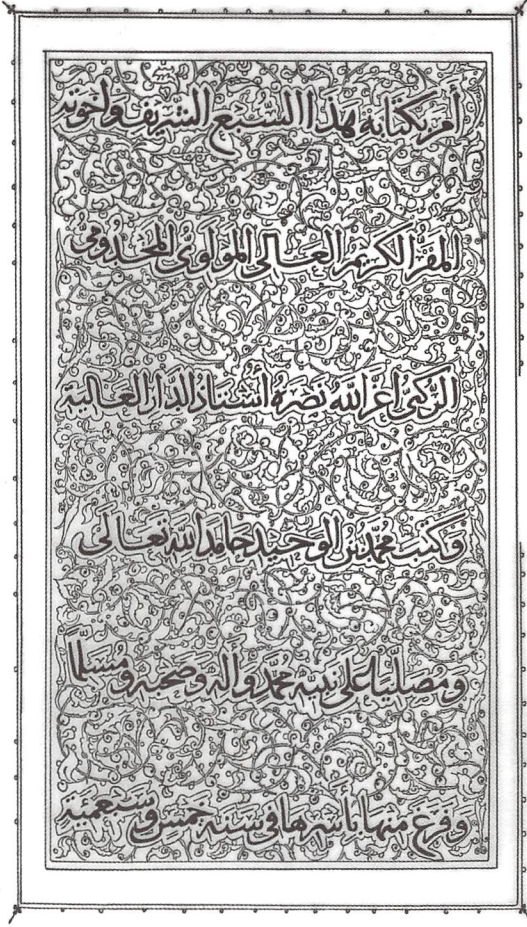 أمر بكتابة هذا السبع الشريف وإخوته
المقر الكريم العالي المولوي المخدومي
الركني أعز الله نصره أستاذ الدار العالية
وكتب محمد بن الوحيد حامدا لله تعالى
ومصليا على نبيه محمد وآله وصحبه ومسلما
وفرغ منها بأسرها في سنة خمس وسبعمية